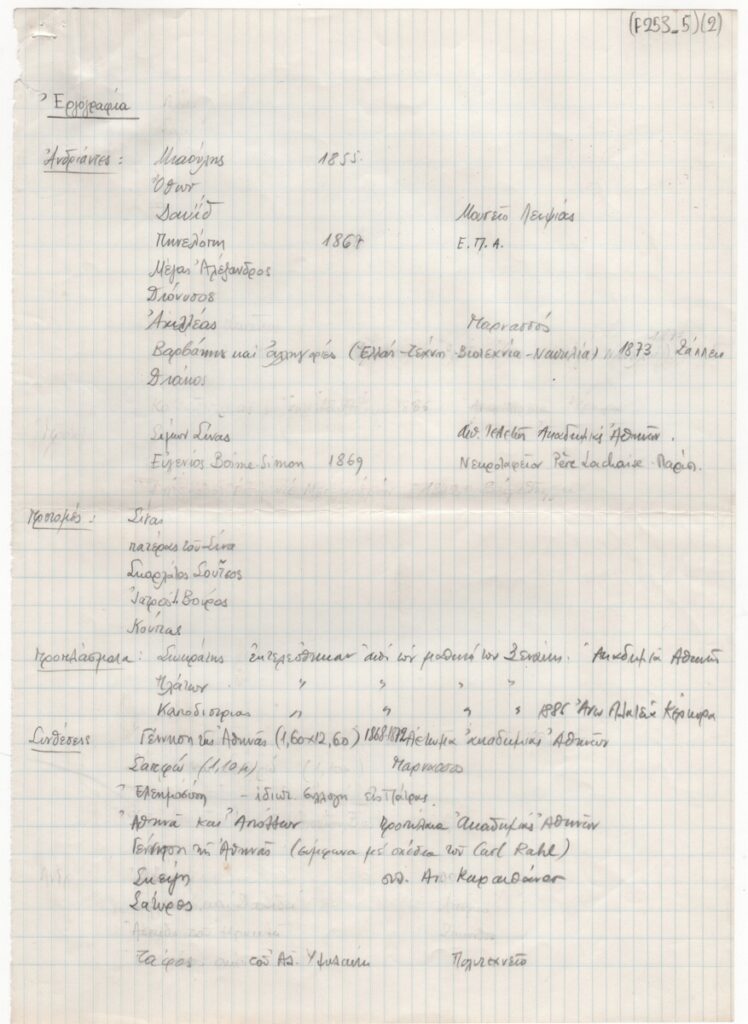 (F253_5)(2)
Ἐργογραφία
Ἀνδριάντες : Μιαούλης 1855
Ὄθων
Δαυΐδ Μουσεῖο Λειψίας
Πηνελόπη 1867 Ε.Π.Α.
Μέγας Ἀλέξανδρος
Διόνυσος
Ἀχιλλέας Παρνασσός
Βαρβάκης καὶ ἀλληγορίες (Ἑλλάς-Τέχνη-Βιοτεχνία-Ναυτιλία) 1873 Ζάππειο
Διάκος
Σίμων Σίνας αἴθ. τελετῶν Ἀκαδημίας Ἀθηνῶν.
Εὐγενίας Boime-Simon 1869 Νεκροταφεῖον Père Lachaise - Παρίσι.
Προτομές : Σίνας
πατέρας τοῦ Σίνα
Σκαρλάτος Σοῦτσος
Ἰατρὸς Βοῦρος
Κούππας
Προπλάσματα : Σωκράτης ἐκτελέσθηκαν ἀπὸ τὸν μαθητή του Ἀκαδημία Ἀθηνῶν
Πλάτων " " " "
Καποδίστριας " " " " 1886 Ἄνω Πλατεῖα Κέρκυρα
Συνθέσεις Γέννηση τῆς Ἀθηνᾶς (1,60x12,60) Ἀέτωμα Ἀκαδημίας Ἀθηνῶν
Σαπφώ (1,10μ) Παρνασσό
Ἐλεημοσύνη - ἰδιωτ. συλλογή εἰς Πάτρας.
Ἀθηνᾶ καὶ Ἀπόλλων Προπύλαια Ἀκαδημίας Ἀθηνῶν
Γέννηση τῆς Ἀθηνᾶς (σύμφωνα μὲ σχέδια τοῦ Carl Rahl)
Σκέψη συλ. Αν. Καραπάνου
Σάτυρος
Τάφος τοῦ Πολυτεχνεῖο